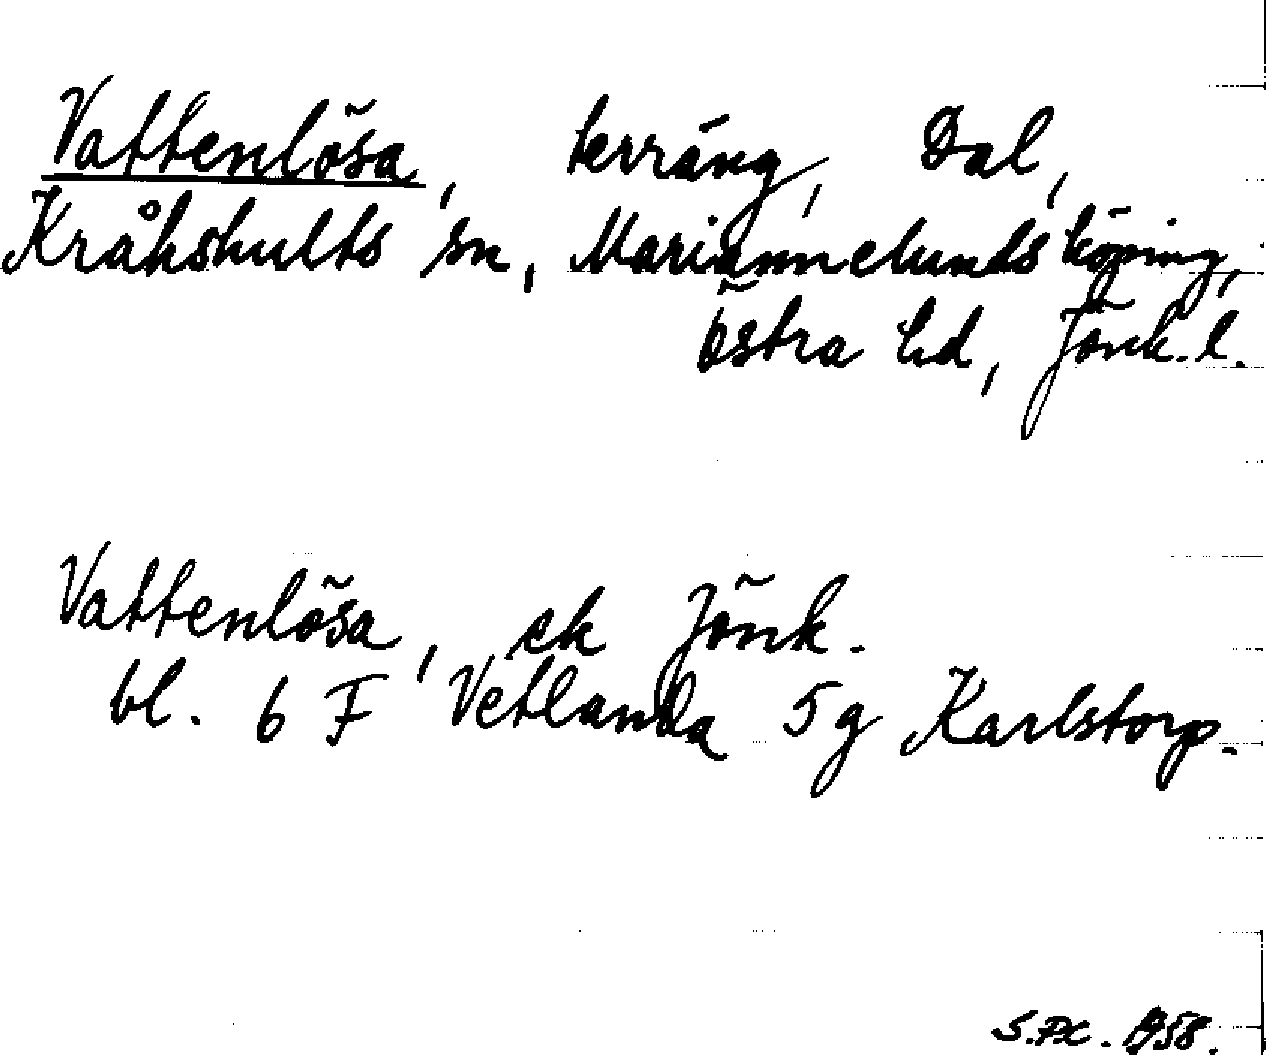 Vattenlösa, terräng, Dal,
Kråkshults sn, Mariannelunds köping,
östra hd, Jönk. l.
Vattenlösa, ek Jönk.
bl. 6 F Vetlanda 5g Karlstorp.
1958.